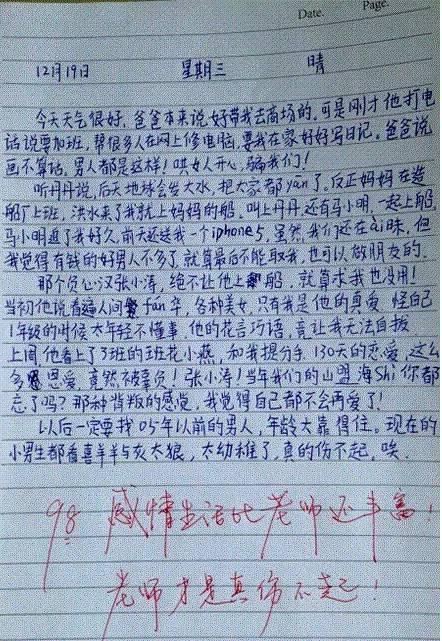 Date. Page.
12月19日 星期三 晴
今天天气很好,爸爸本来说好带我去商场的,可是刚才他打电
话说要加班,帮很多人在网上修电脑,要我在家好好写日记。爸爸说
画不算话,男人都是这样!哄女人开心,骗我们!
听丹丹说,后天地球会发大水,把大家都yān了。反正妈妈在造
船厂上班,洪水来了我就上妈妈的船,叫上丹丹,还有马小明,一起上船,
马小明追了我好久,前天还送我一个iphone5,虽然我们还在ài昧,但
我觉得有钱的好男人不多了,就算最后不能取我,也可以做朋友的。
那个负心汉张小涛,绝不让他上船,就算求我也没用!
当初他说看遍人间fán华,各种美女,只有我是他的真爱,怪自己
1年级的时候太年轻不懂事,他的花言巧语,竟让我无法自拔
上周他看上了3班的班花小燕,和我提分手,130天的恋爱,这么
多恩爱,竟然不被辜负!张小涛!当年我们的山盟海Shi你都
忘了吗?那种背叛的感觉,我觉得自己都不会再爱了!
以后一定要找05年以前的男人,年龄大靠得住。现在的
小男生都看喜羊羊与灰太狼,太幼稚了,真的伤不起,唉.
98 感情生活比老师还丰富!
老师才是真伤不起!